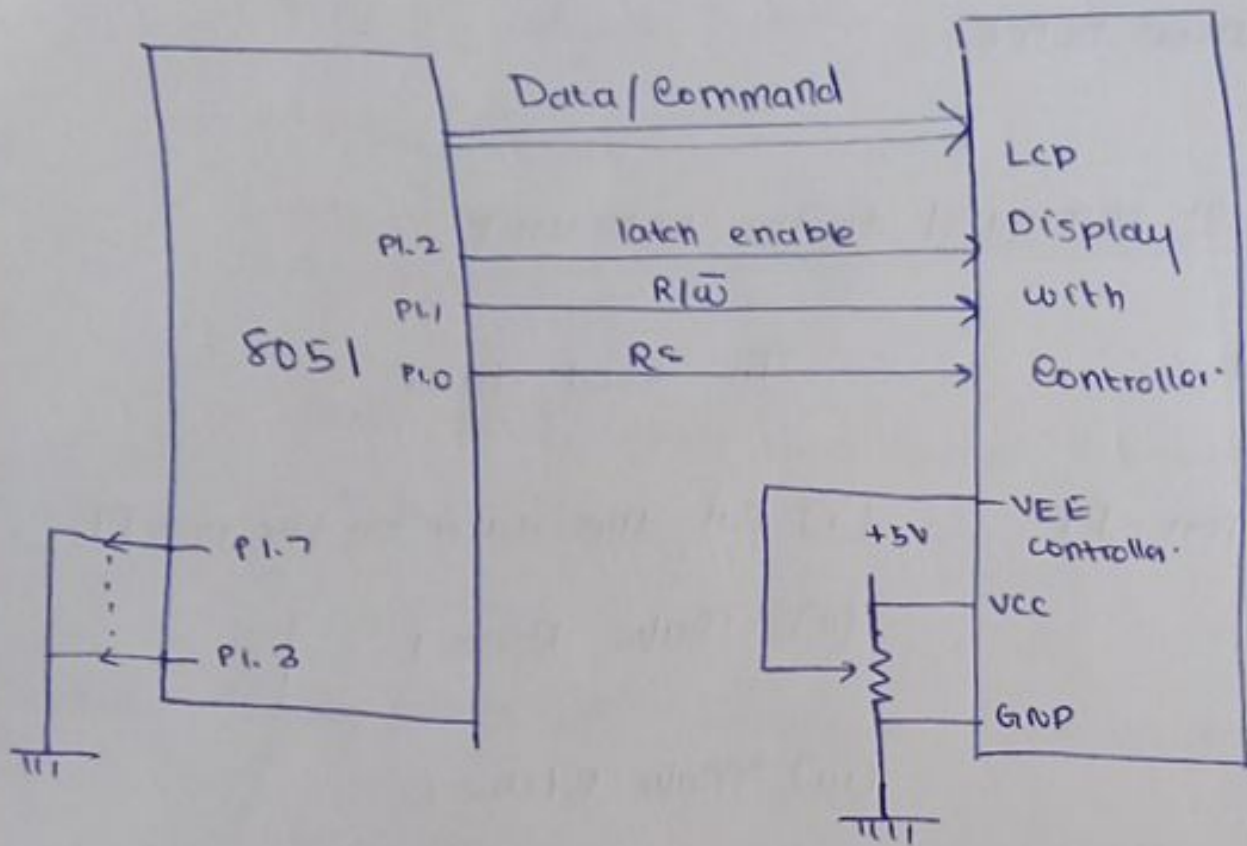 Data/Command
LCD
Display
with
Controller.
P1.2
latch enable
P1.1
R/W̅
8051
P1.0
RS
P1.7
P1.3
+5V
VEE
controller.
VCC
GND